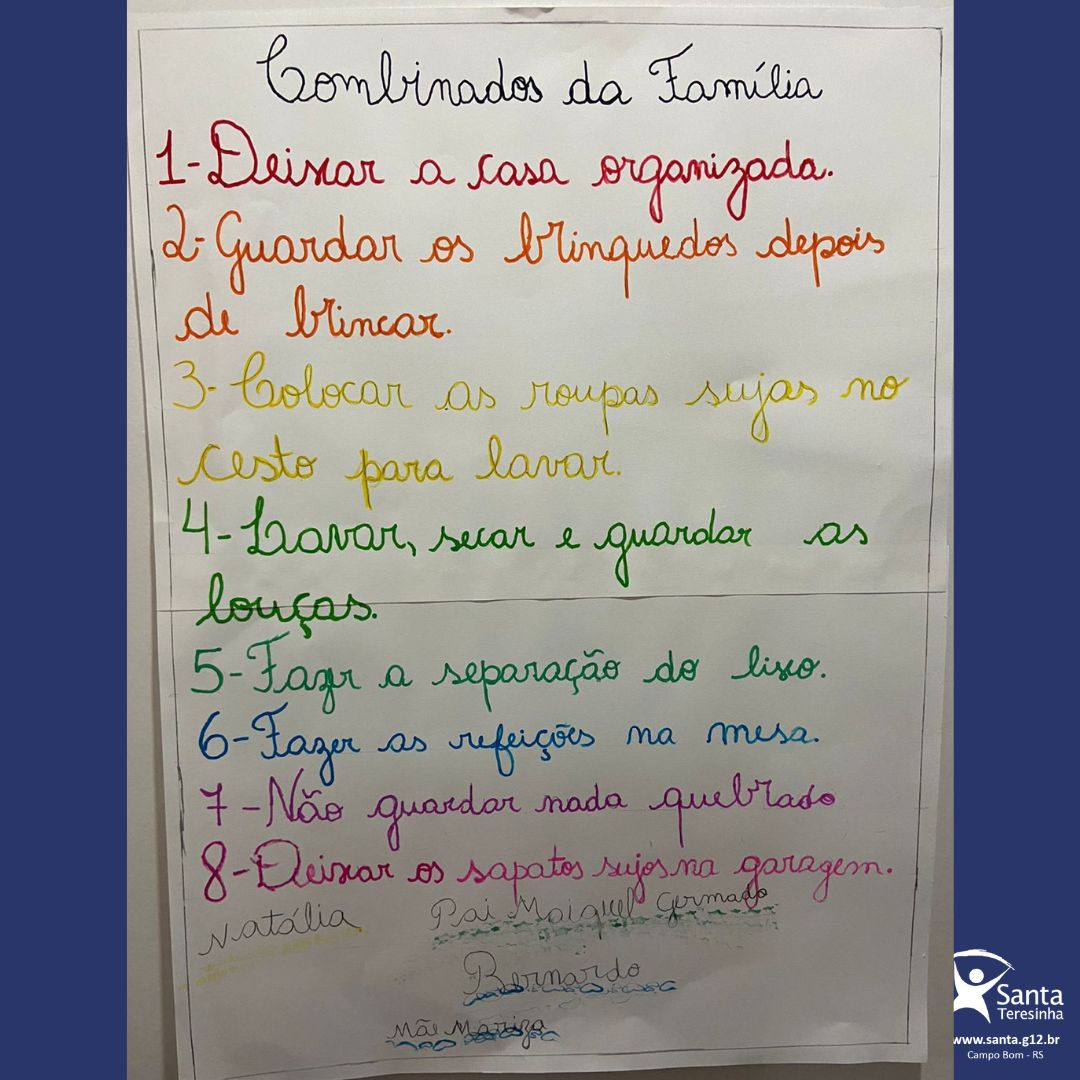 Combinados da Família
1-Deixar a casa organizada.
2-Guardar os brinquedos depois
de brincar.
3-Colocar as roupas sujas no
cesto para lavar.
4-Lavar, secar e guardar as
louças.
5-Fazer a separação do lixo.
6-Fazer as refeições na mesa.
7-Não guardar nada quebrado
8-Deixar os sapatos sujos na garagem.
Natália Pai Maiquel
Bernardo
Mãe Mariza
Santa
Teresinha
www.santa.g12.br
Campo Bom - RS